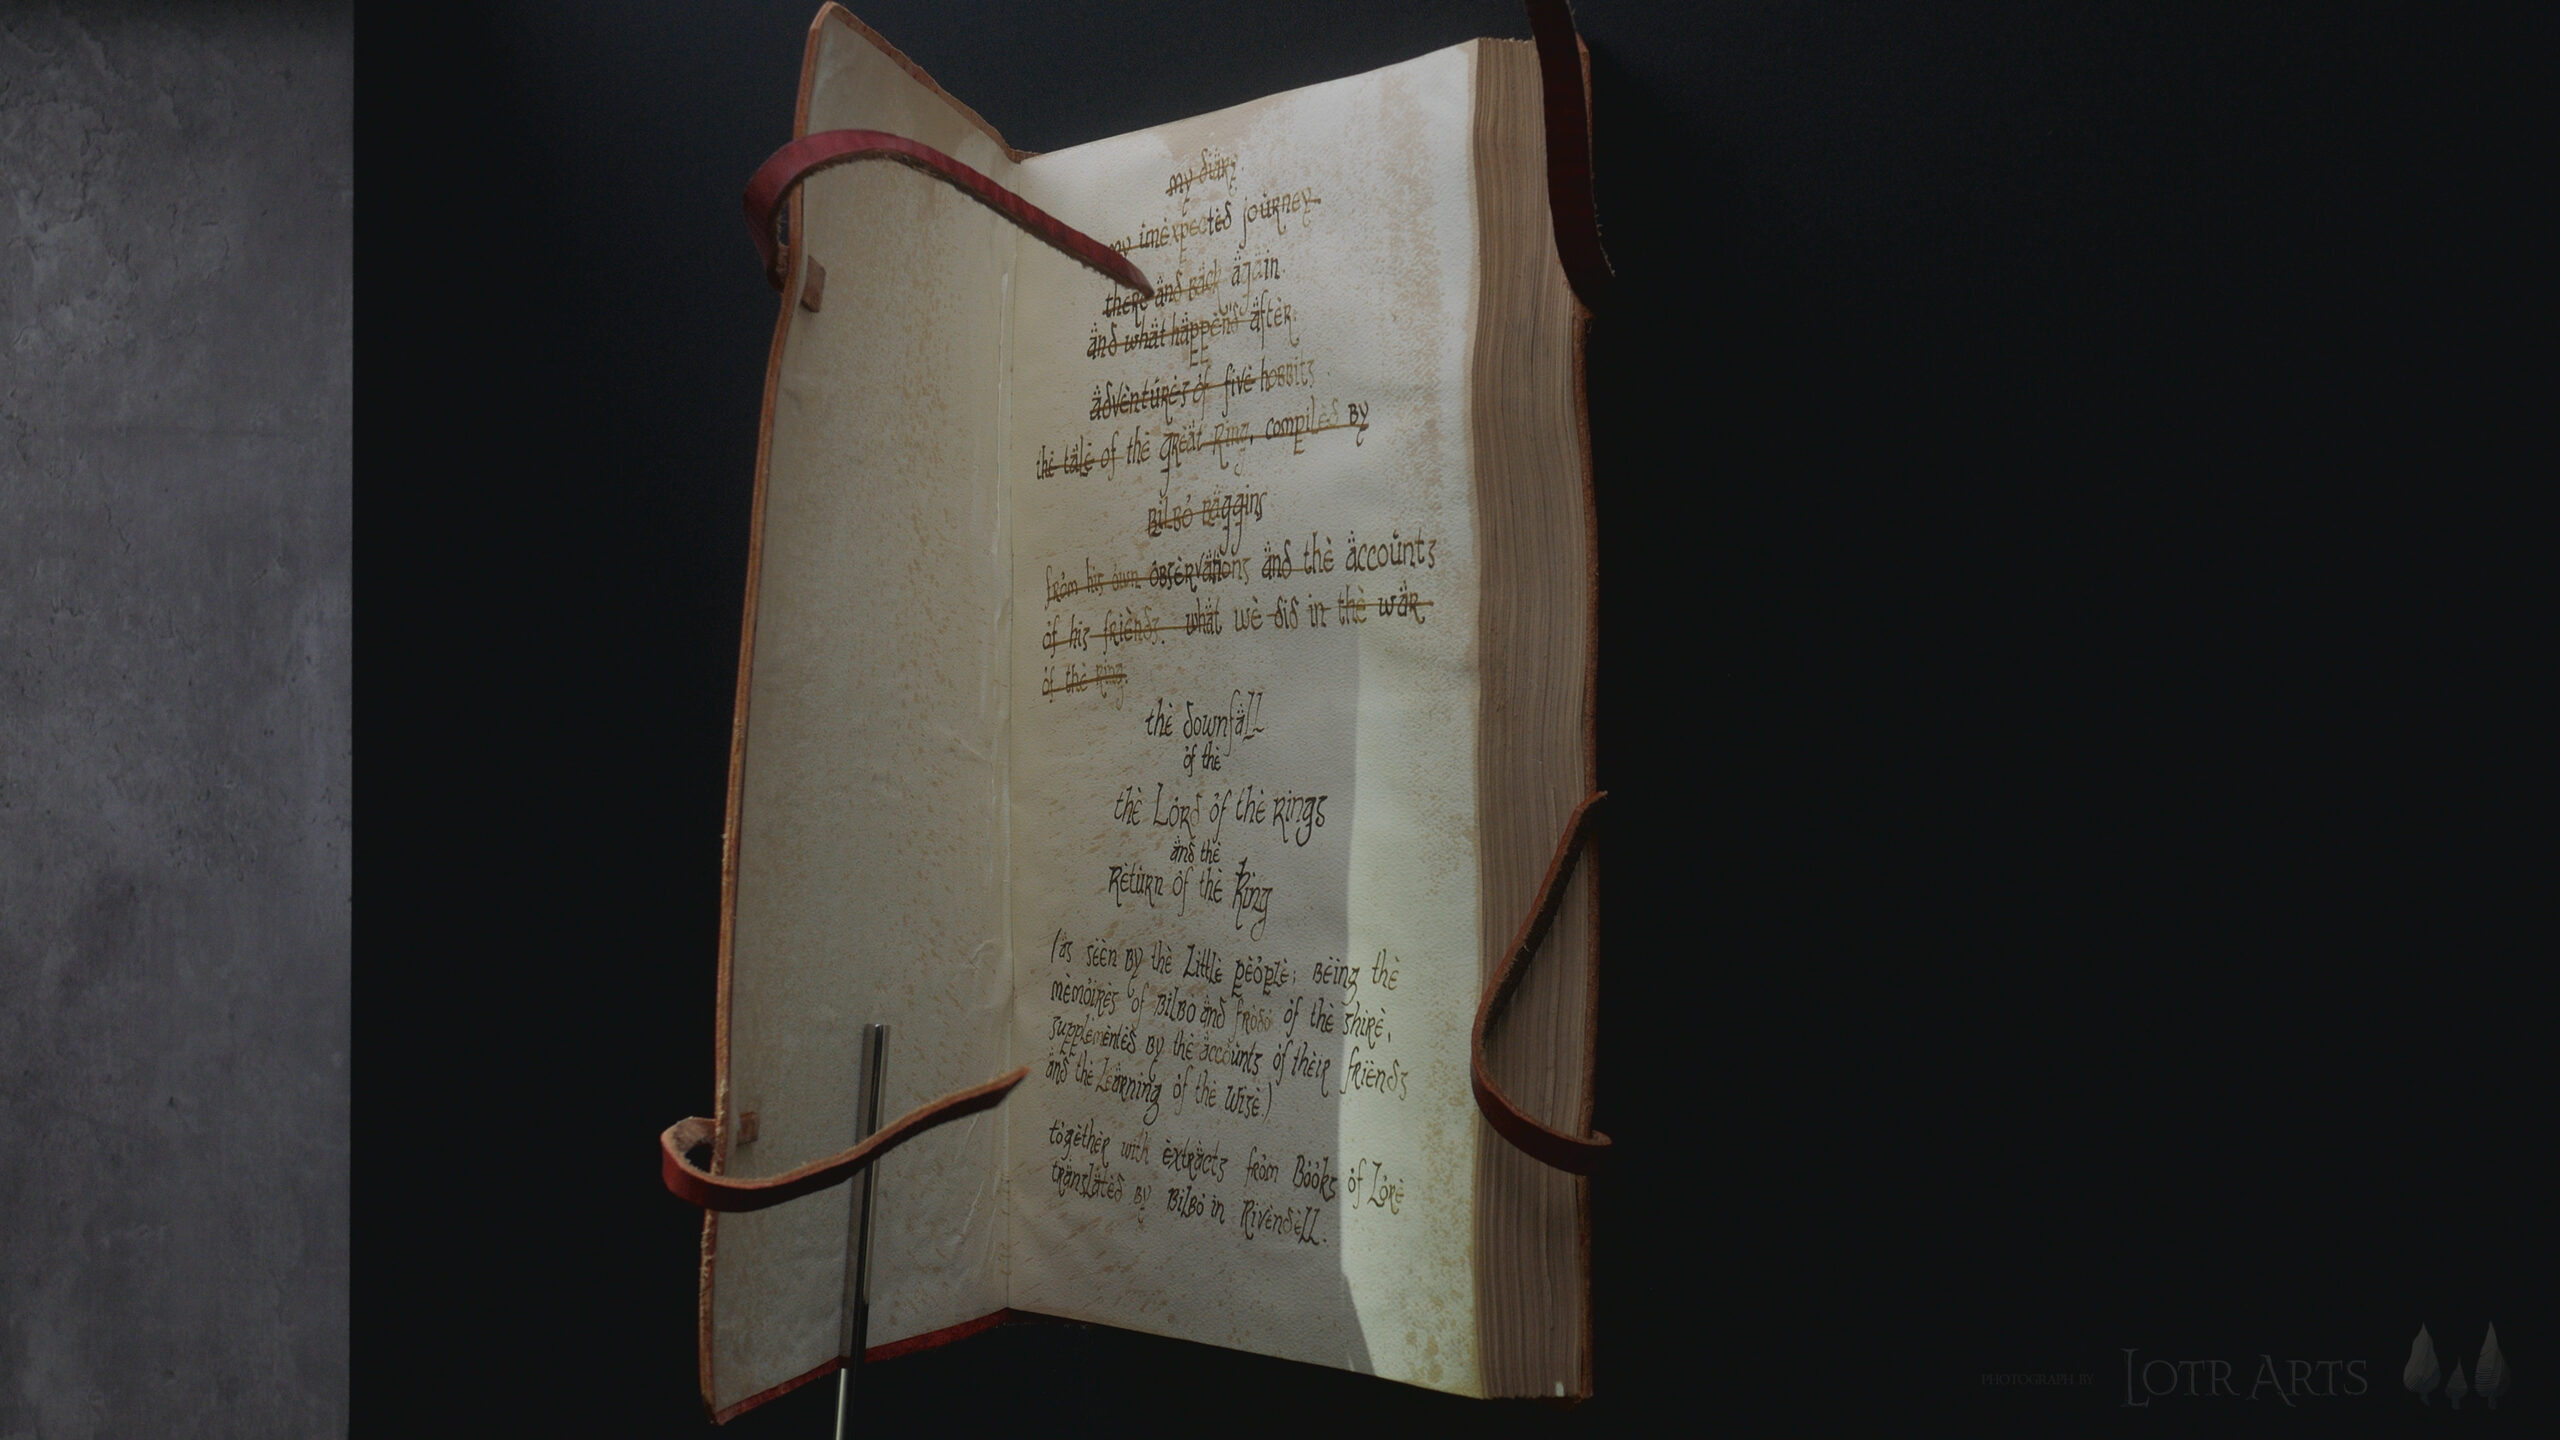 my diary.
my unexpected journey.
there and back again.
and what happened after.
adventures of five hobbits.
the tale of the great Ring, compiled by
Bilbo Baggins
from his own observations and the accounts
of his friends. what we did in the war
of the Ring.
the downfall
of the
the Lord of the Rings
and the
Return of the King
(as seen by the Little people; being the
memoires of Bilbo and frodo of the shire,
supplemented by the accounts of their friends
and the Learning of the Wise.)
together with extracts from Books of Lore
translated by Bilbo in Rivendell.
PHOTOGRAPH BY LOTR ARTS